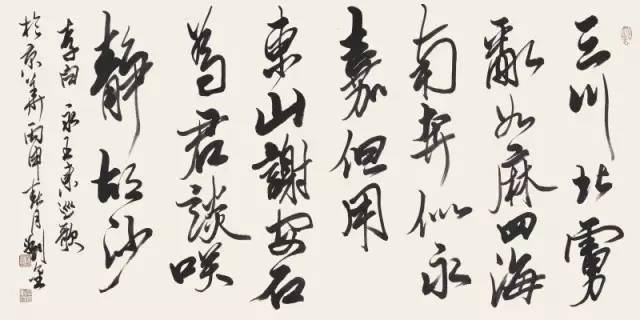 三川北虜
亂如麻四海
南奔似永
嘉但用
東山謝安石
為君談咲
靜胡沙
李白 永王東巡歌
於京華丙申春月劉